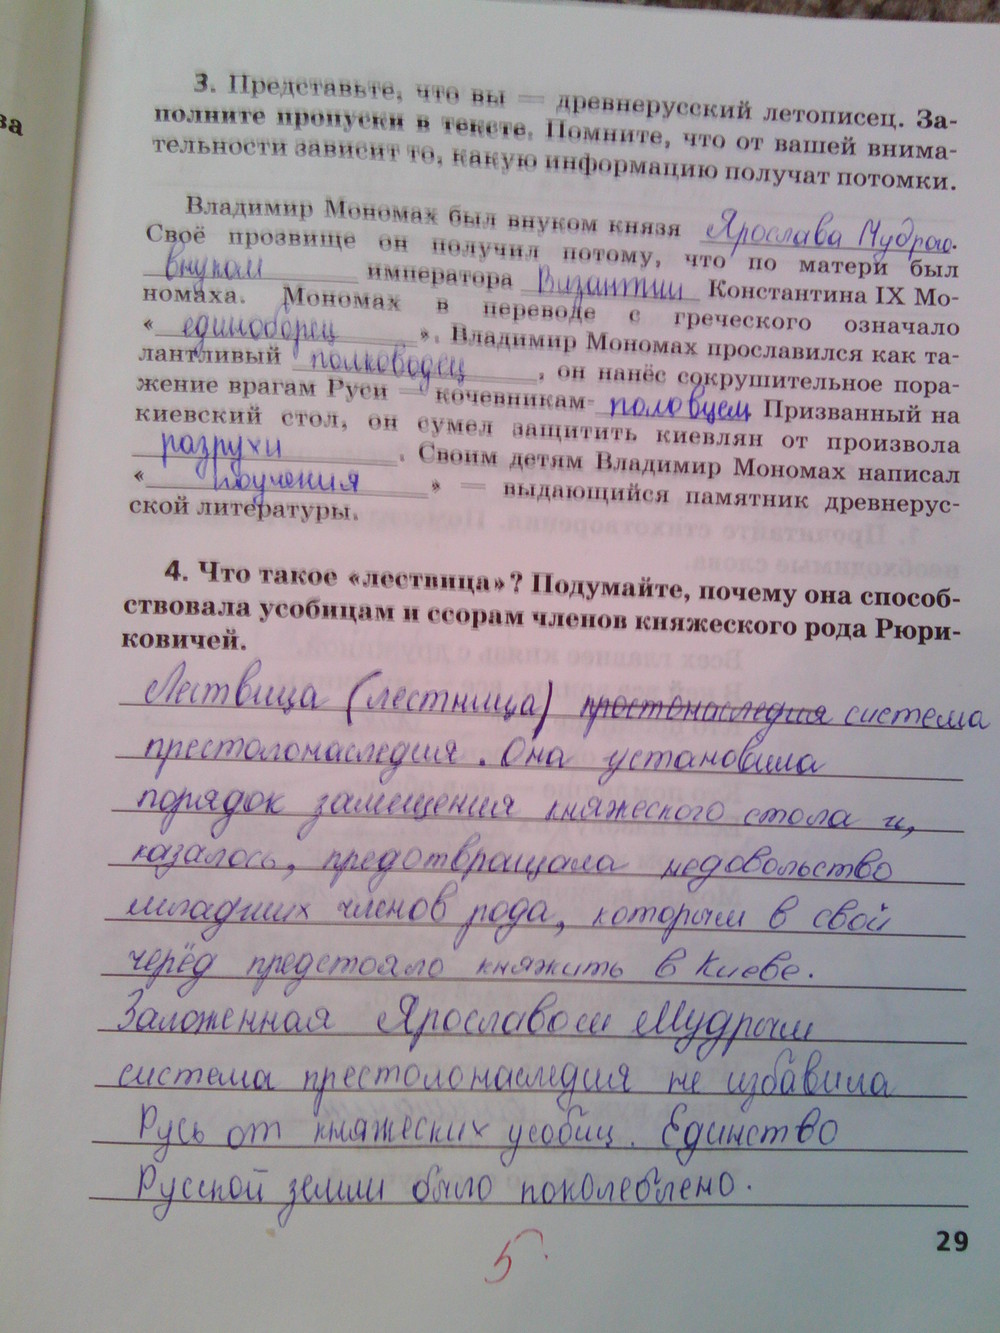 ва
3. Представьте, что вы — древнерусский летописец. За-
полните пропуски в тексте. Помните, что от вашей внима-
тельности зависит то, какую информацию получат потомки.
Владимир Мономах был внуком князя Ярослава Мудрого.
Своё прозвище он получил потому, что по матери был
внуком императора Византии Константина IX Мо-
номаха. Мономах в переводе с греческого означало
« единоборец ». Владимир Мономах прославился как та-
лантливый полководец, он нанёс сокрушительное пора-
жение врагам Руси — кочевникам- половцем Призванный на
киевский стол, он сумел защитить киевлян от произвола
разрухи. Своим детям Владимир Мономах написал
« Поучения » — выдающийся памятник древнерус-
ской литературы.
4. Что такое «лествица»? Подумайте, почему она способ-
ствовала усобицам и ссорам членов княжеского рода Рюри-
ковичей.
Лествица (лестница) простонаследия система
престолонаследия. Она установила
порядок замещения княжеского стола и,
казалось, предотвращала недовольство
младших членов рода, которым в свой
черёд предстояло княжить в Киеве.
Заложенная Ярославом Мудрым
система престолонаследия не избавила
Русь от княжеских усобиц. Единство
Русской земли было поколеблено.
29
5